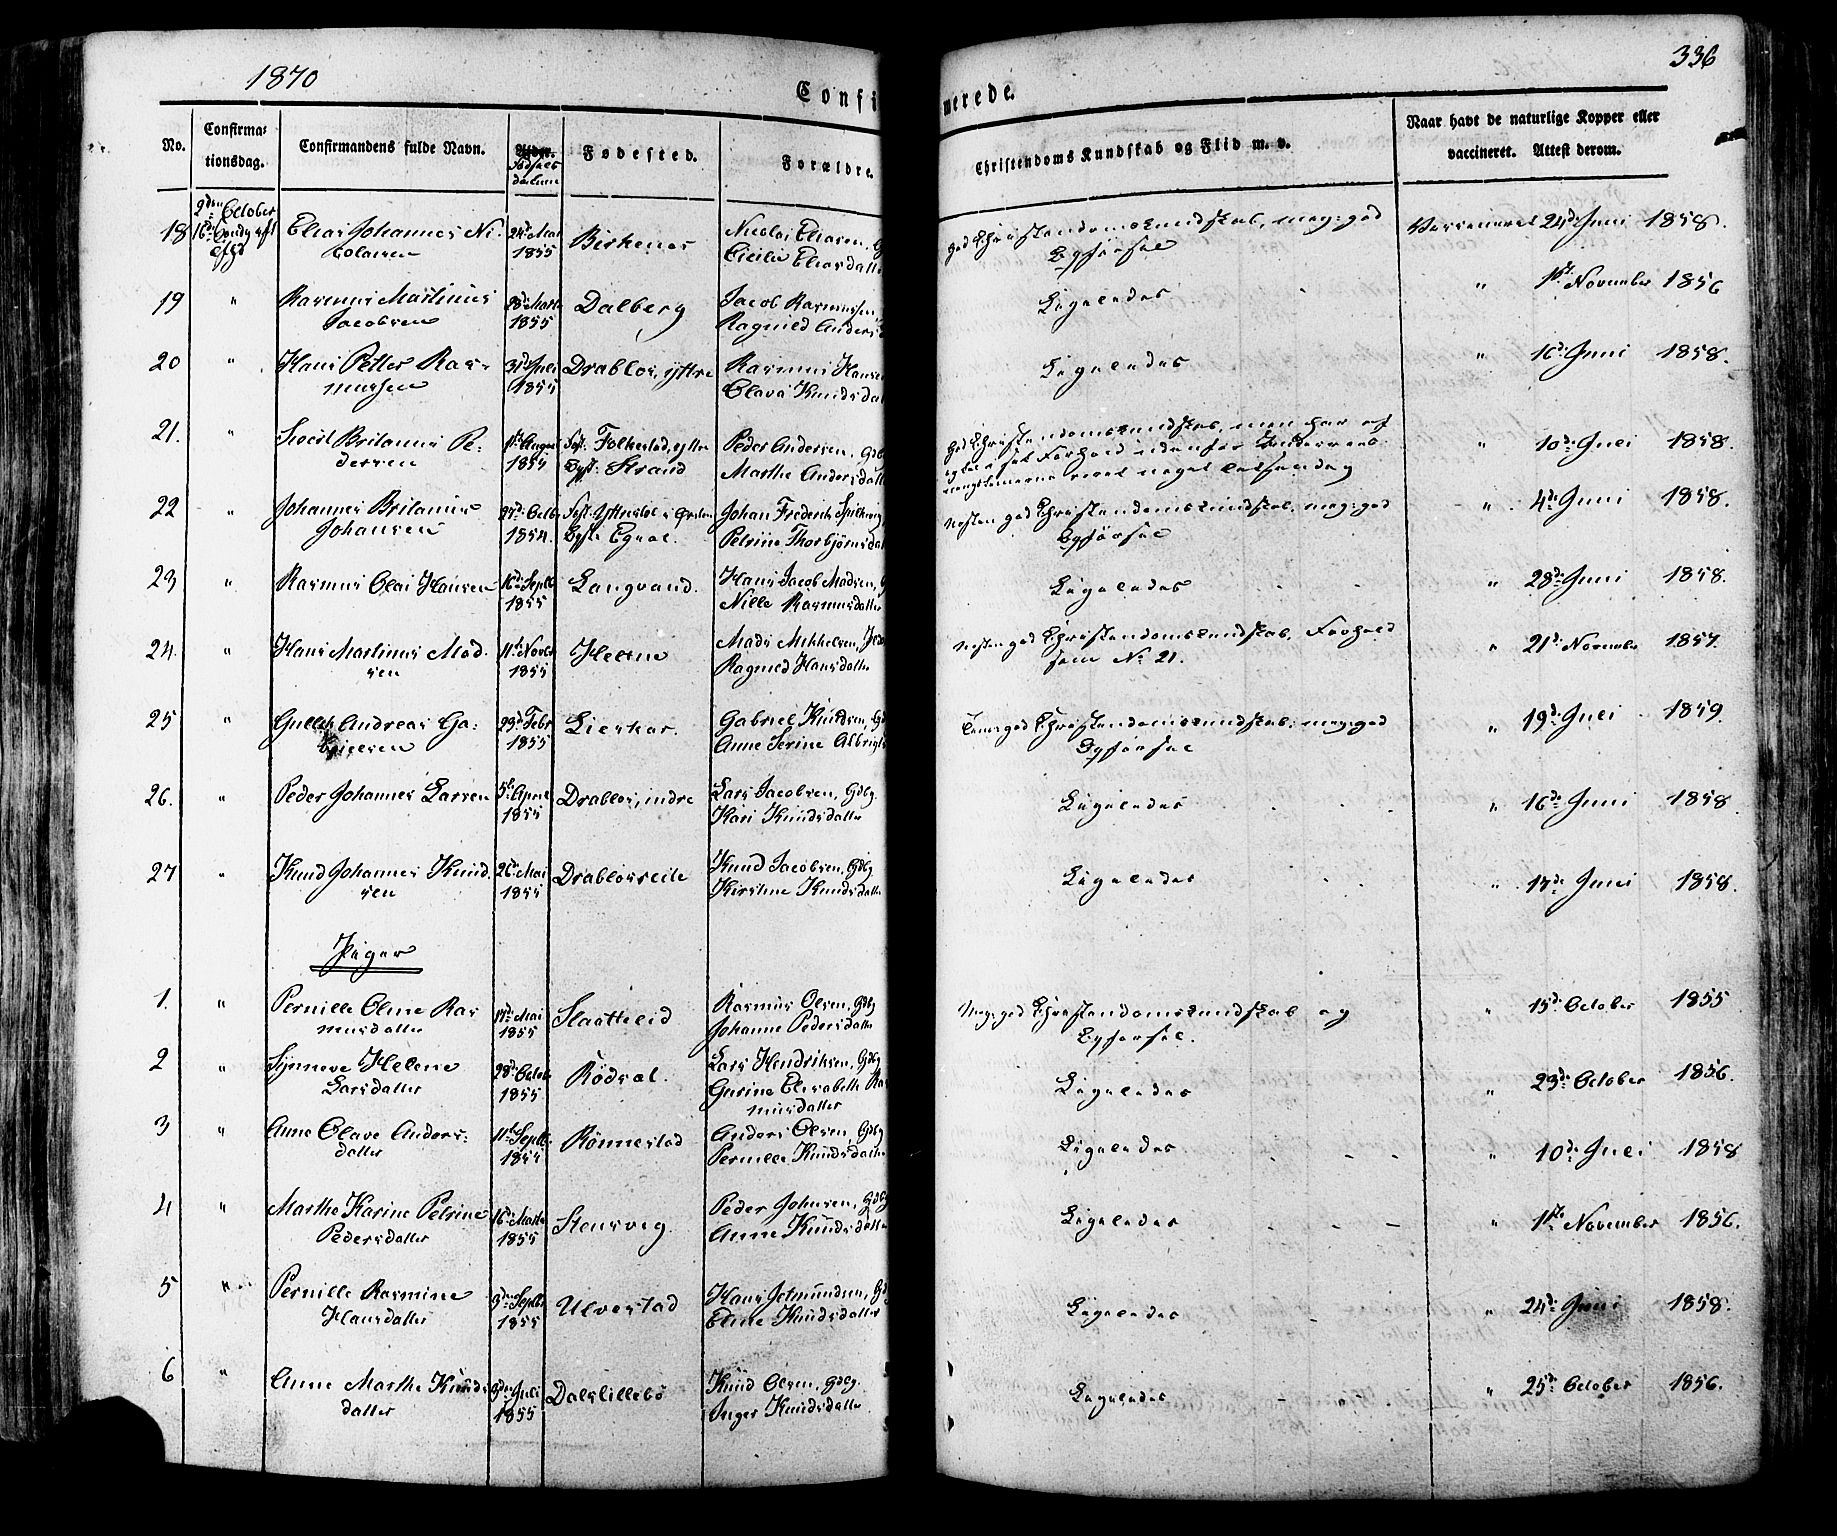 1870
336
Confi
merede.
No.
Confirma-
tionsdag.
Confirmandens fulde Navn.
Alder.
Fødsels
datum
Fødested.
Forældre.
Christendoms Kundskab og Fliid m. v.
Naar havt de naturlige Kopper eller
vaccineret. Attest derom.
18
2den October
16de Søndg eft
Elias Johannes Ni-
colaisen
24de Mai
1855
Birkenes
Nicolai Eliasen, G
Cicilie Eliasdatte
god Christendomskundskab, meg: god
Opførsel
Vaccineret 24de Juni 1858.
19
"
Rasmus Martinus
Jacobsen
28de Marts
1855
Dalberg
Jacob Rasmussen,
Ragnild Anders
Ligeledes
" 1ste November 1856
20
"
Hans Petter Ras-
mussen
31te Juli
1855
Drabløs, ytre
Rasmus Hansen
Olava Knudsdat
Ligeledes
" 16de Juni 1858.
21.
"
Sivert Britanus Pe-
dersen
11te August
1854
Født Folkestad, ytre
Opf. Strand
Peder Andersen, Gdb
Marthe Andersdatt
god Christendomskundskab, men har af
og til sit Forhold udenfor Undervis-
ningstimerne været noget letsindig
" 10de Juli 1858.
22
"
Johannes Britanus
Johansen
1854.
Født Yttrestøl i Ørsten
Opft Egnal.
Johan Frederik
Petrine Thorbjørnsdat
Næsten god Christendomskundskab, meg: god
Opførsel
" 4de Juni 1858.
23
"
Rasmus Olai Hansen
16de Septb
1855
Langvand.
Hans Jacob Madsen, G
Nille Rasmusdatter
Ligeledes
" 28de Juni 1858.
24.
"
Hans Martinus Mad-
sen
11te Novbr
1855
Heltne
Mads Mikkelsen,
Ragnild Hansdatter
Næsten god Christendomskundskab, Forhold
som No 21.
" 21de November 1857.
25
"
Gullik Andreas Ga-
brielsen
23de Febr
1855
Lierhar.
Gabriel Knudsen, Gd
Anne Serine Albrigts
Temgod Christendomskundskab; meg: god
Opførsel
" 19de Juli 1859.
26.
"
Peder Johannes Larsen
5te April
1855
Drabløs, indre
Lars Jacobsen, Gdbg.
Kari Knudsdatter
Ligeledes
" 16de Juni 1858
27
"
Knud Johannes Knud-
sen
26de Mai
1855
Drabløsreite
Knud Jacobsen, Gdbg
Kirstine Knudsdatter
Ligeledes
" 17de Juli 1858.
Piger
1.
"
Pernille Oline Ras
musdatter
17de Mai
1855
Slaatteleid
Rasmus Olsen, Gdbg
Johanne Pedersdatter
Meg: god Christendomskundskab og
Opførsel.
" 15de October 1855
2
"
Synneve Helene
Larsdatter
28de Octob
1855
Rødsæt.
Lars Hendriksen, Gdbg
Gurine Elisabeth Ras
musdatter
Ligeledes
" 23de October 1856.
3
"
Anne Olave Anders-
datter
11te Septb.
1855
Rønnestad
Anders Olsen, Gdbg
Pernille Knudsdatter
Ligeledes
" 10de Juli 1858
4
"
Marthe Karine Petrine
Pedersdatter
16de Marts
1855
Stensveg.
Peder Johnsen, Gdbg
Anne Knudsdatter
Ligeledes
" 1ste November 1856.
5
"
Pernille Rasmine
Hansdatter
3de Septbr
1855
Ulvestad
Hans Jetmundsen, Gd
Eline Knudsdatter
Ligeledes
" 24de Juni 1858.
6
"
Anne Marthe Knuds
datter
3de Juli
1855
Dalslillebø
Knud Olsen, Gdbg.
Inger Knudsdatter
Ligeledes
" 25de October 1856.